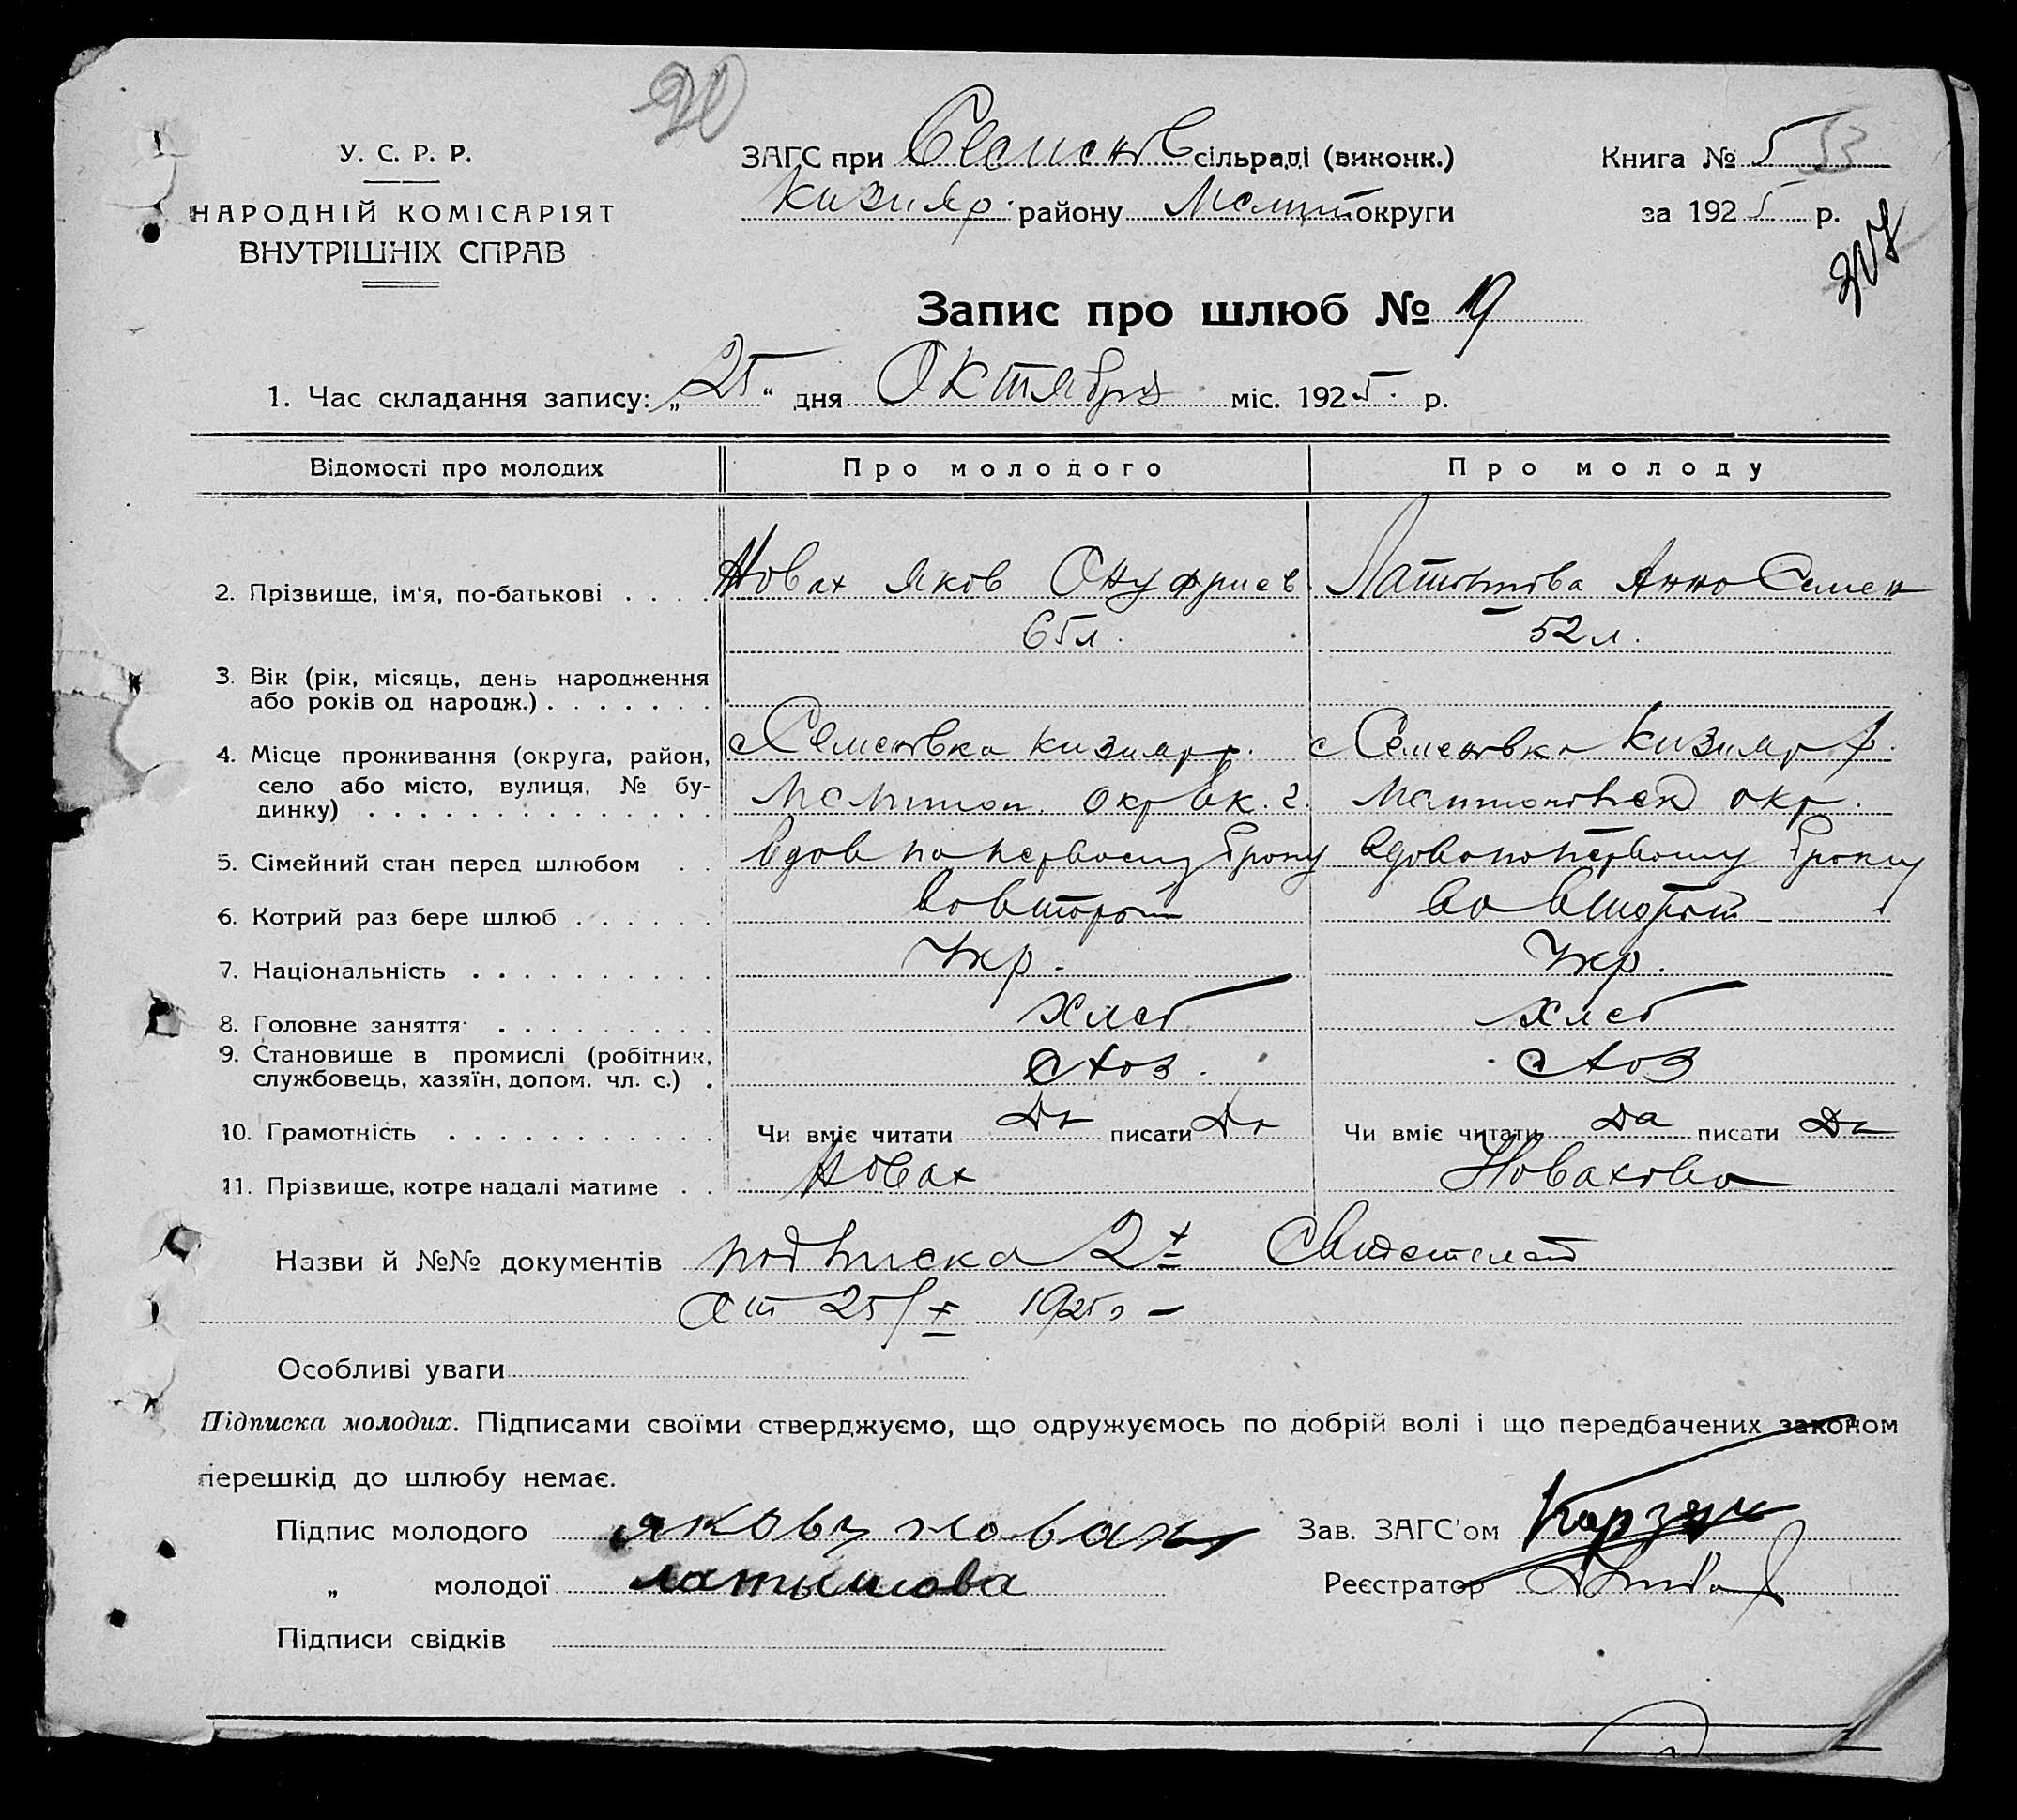 20
У. С. Р. Р.
НАРОДНІЙ КОМІСАРІЯТ
ВНУТРІШНІХ СПРАВ
ЗАГС при Семенов сільраді (виконк.)
Кизияр. району Мелит округи
Книга № 5 53
за 1925 р.
207
Запис про шлюб № 19
1. Час складання запису: „25“ дня Октября міс. 1925. р.
Відомості про молодих
Про молодого
Про молоду
2. Прізвище, ім'я, по-батькові . . . .
Новах Яков Онуфриев.
Латышова Анна Семен
65 л.
52 л.
3. Вік (рік, місяць, день народження
або років од народж.) . . . . . . .
4. Місце проживання (округа, район,
село або місто, вулиця, № бу-
динку) . . . . . . . . . . . . . .
с Семеновка Кизияр р.
с Семеновка Кизияр р.
Мелитоп. окр
Мелитопольск окр.
5. Сімейний стан перед шлюбом . .
вдов по первому браку
вдова по первому браку
6. Котрий раз бере шлюб . . . . . .
во второй
во второй
7. Національність . . . . . . . . . .
Укр.
Укр.
8. Головне заняття . . . . . . . . .
Хлеб
Хлеб
9. Становище в промислі (робітник,
службовець, хазяїн, допом. чл. с.) .
10. Грамотність . . . . . . . . . . .
Чи вміє читати Да писати Да
Чи вміє читати Да писати Да
11. Прізвище, котре надалі матиме . .
Новах
Новахова
Назви й №№ документів подписка 2х свидетелей
от 25/X 1925 г
Особливі уваги
Підписка молодих. Підписами своїми стверджуємо, що одружуємось по добрій волі і що передбачених законом
перешкід до шлюбу немає.
Підпис молодого
Зав. ЗАГС'ом
„ молодої латышова
Реєстратор
Підписи свідків